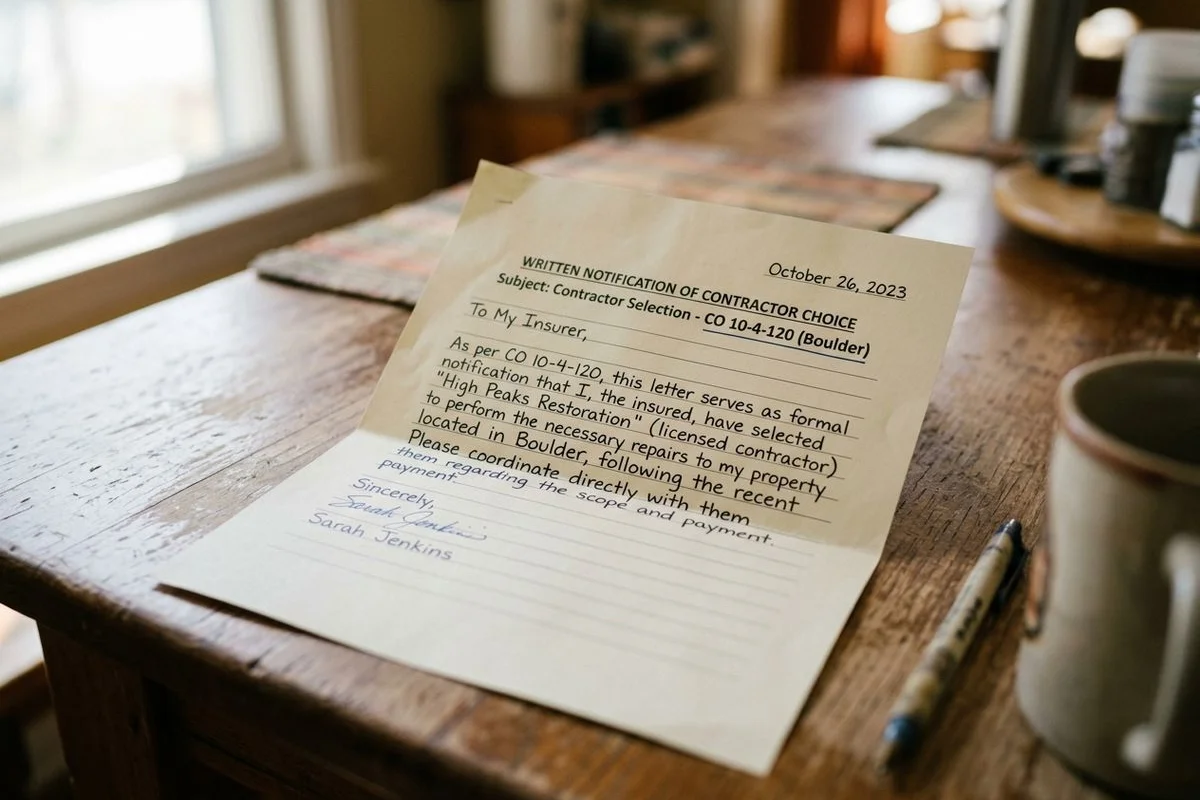 October 26, 2023
WRITTEN NOTIFICATION OF CONTRACTOR CHOICE
Subject: Contractor Selection - CO 10-4-120 (Boulder)
To My Insurer,
As per CO 10-4-120, this letter serves as formal
notification that I, the insured, have selected
"High Peaks Restoration" (licensed contractor)
to perform the necessary repairs to my property
located in Boulder, following the recent
Please coordinate directly with them
them regarding the scope and payment.
payment.
Sincerely,
Sarah Jenkins
Sarah Jenkins